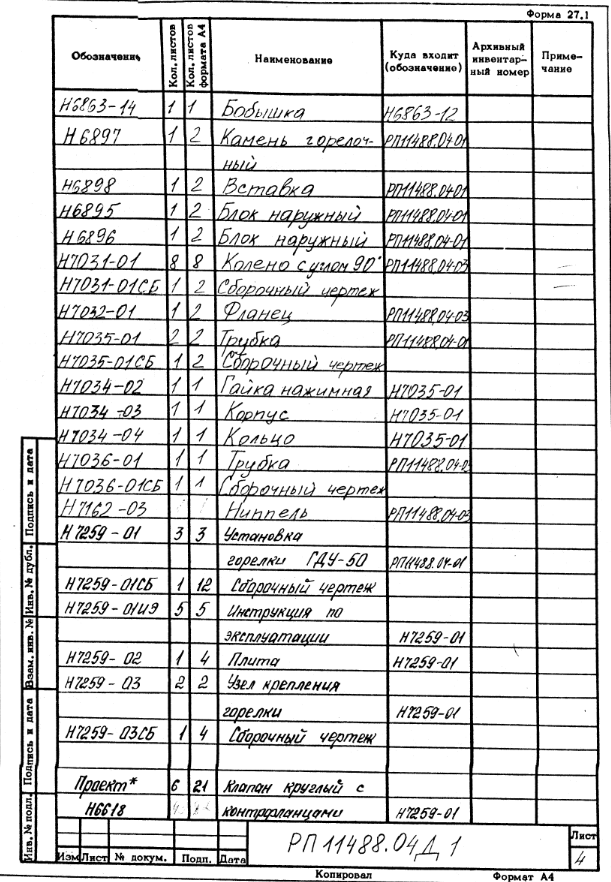 Форма 27.1
Обозначение Кол. листов Кол. листов формата А4 Наименование Куда входит (обозначение) Архивный инвентарный номер Примечание
Н6863-14 1 1 Бобышка Н6863-12
Н6897 1 2 Камень горелоч- РП11488.04-01
ный
Н6898 1 2 Вставка РП11488.04-01
Н6895 1 2 Блок наружный РП11488.04-01
Н6896 1 2 Блок наружный РП11488.04-01
Н7031-01 8 8 Колено с углом 90° РП11488.04-03
Н7031-01СБ 1 2 Сборочный чертеж
Н7032-01 1 2 Фланец РП11488.04-03
Н7035-01 2 2 Трубка РП11488.04-01
Н7035-01СБ 1 2 Сборочный чертеж
Н7034-02 1 1 Гайка нажимная Н7035-01
Н7034-03 1 1 Корпус Н7035-01
Н7034-04 1 1 Кольцо Н7035-01
Н7036-01 1 1 Трубка
Н7036-01СБ 1 1 Сборочный чертеж
Н7162-03 Ниппель РП11488.04-03
Н7259-01 3 3 Установка
горелки ГДУ-50 РП11488.04-01
Н7259-01СБ 1 12 Сборочный чертеж
Н7259-01ИЭ 5 5 Инструкция по
эксплуатации Н7259-01
Н7259-02 1 4 Плита Н7259-01
Н7259-03 2 2 Узел крепления
горелки Н7259-01
Н7259-03СБ 1 4 Сборочный чертеж
Проект* 6 21 Клапан круглый с
Н6618 контрфланцами Н7259-01
Инв. № подл. Подпись и дата Взам. инв. № Инв. № дубл. Подпись и дата
РП11488.04Д1
Лист
4
Изм Лист № докум. Подп. Дата
Копировал Формат А4